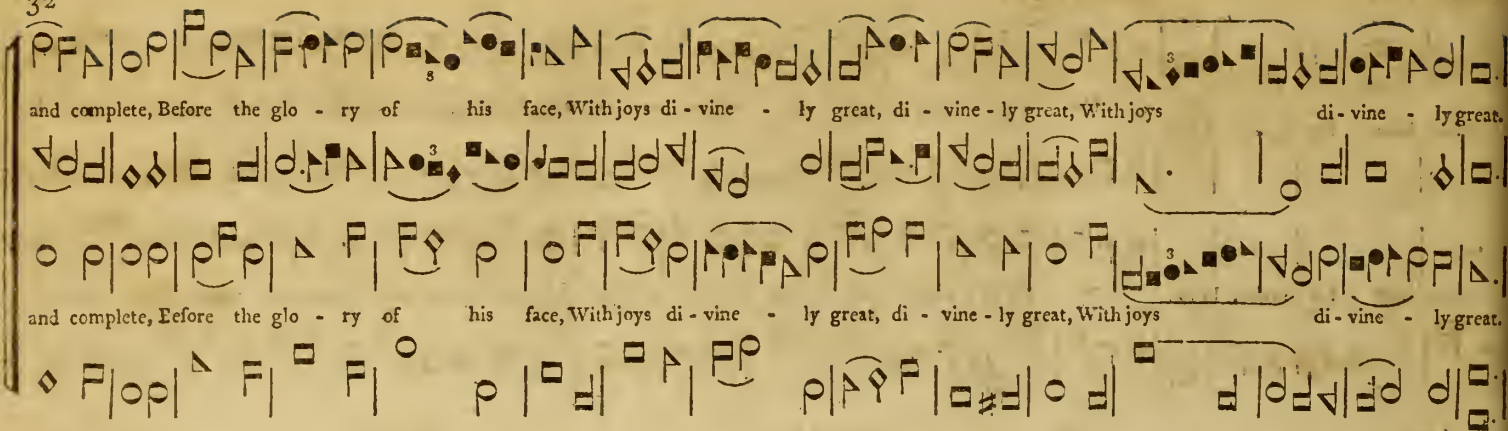 32
and complete, Before the glo - ry of his face, With joys di - vine - ly great, di - vine - ly great, With joys di - vine - ly great.
3
8
3
3
3
and complete, Eefore the glo - ry of his face, With joys di - vine - ly great, di - vine - ly great, With joys di - vine - ly great.